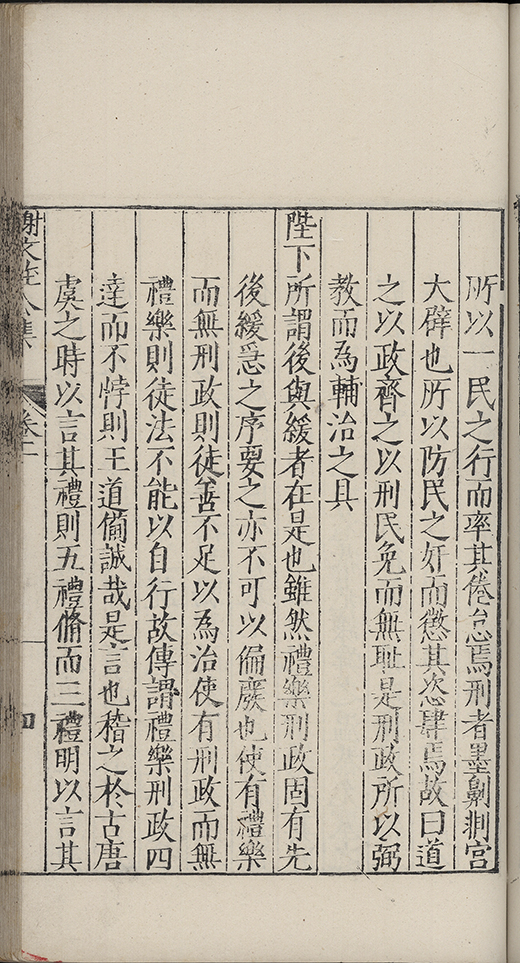 所以一民之行而率其倦怠焉刑者墨劓剕宮
大辟也所以防民之奸而懲其恣肆焉故曰道
之以政齊之以刑民免而無恥是刑政所以弼
教而為輔治之具
陛下所謂後與緩者在是也雖然禮樂刑政固有先
後緩急之序要之亦不可以偏廢也使有禮樂
而無刑政則徒善不足以為治使有刑政而無
禮樂則徒法不能以自行故傳謂禮樂刑政四
達而不悖則王道備誠哉是言也稽之於古唐
虞之時以言其禮則五禮脩而三禮明以言其
謝文莊公集
卷二
四